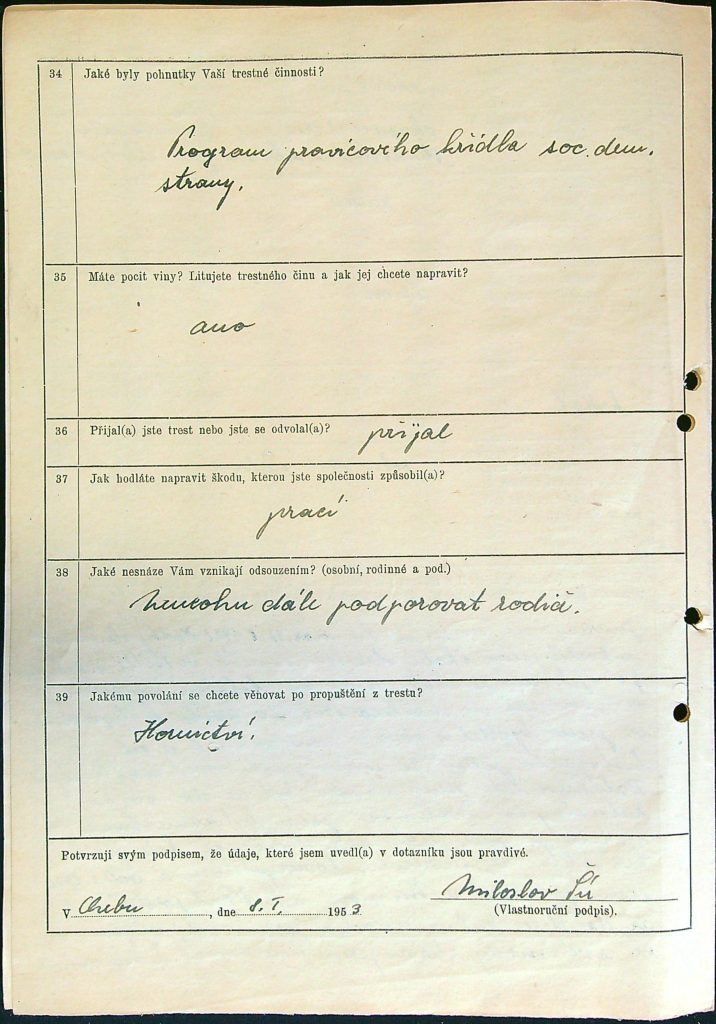 34 Jaké byly pohnutky Vaší trestné činnosti?
Program pravicového křídla soc. dem.
strany.
35 Máte pocit viny? Litujete trestného činu a jak jej chcete napravit?
ano
36 Přijal(a) jste trest nebo jste se odvolal(a)? přijal
37 Jak hodláte napravit škodu, kterou jste společnosti způsobil(a)?
prací
38 Jaké nesnáze Vám vznikají odsouzením? (osobní, rodinné a pod.)
dále podporovat rodič.
39 Jakému povolání se chcete věnovat po propuštění z trestu?
Hornictví.
Potvrzuji svým podpisem, že údaje, které jsem uvedl(a) v dotazníku jsou pravdivé.
Miloslav Šír
V Chebu, dne 8. I. 1953 (Vlastnoruční podpis).